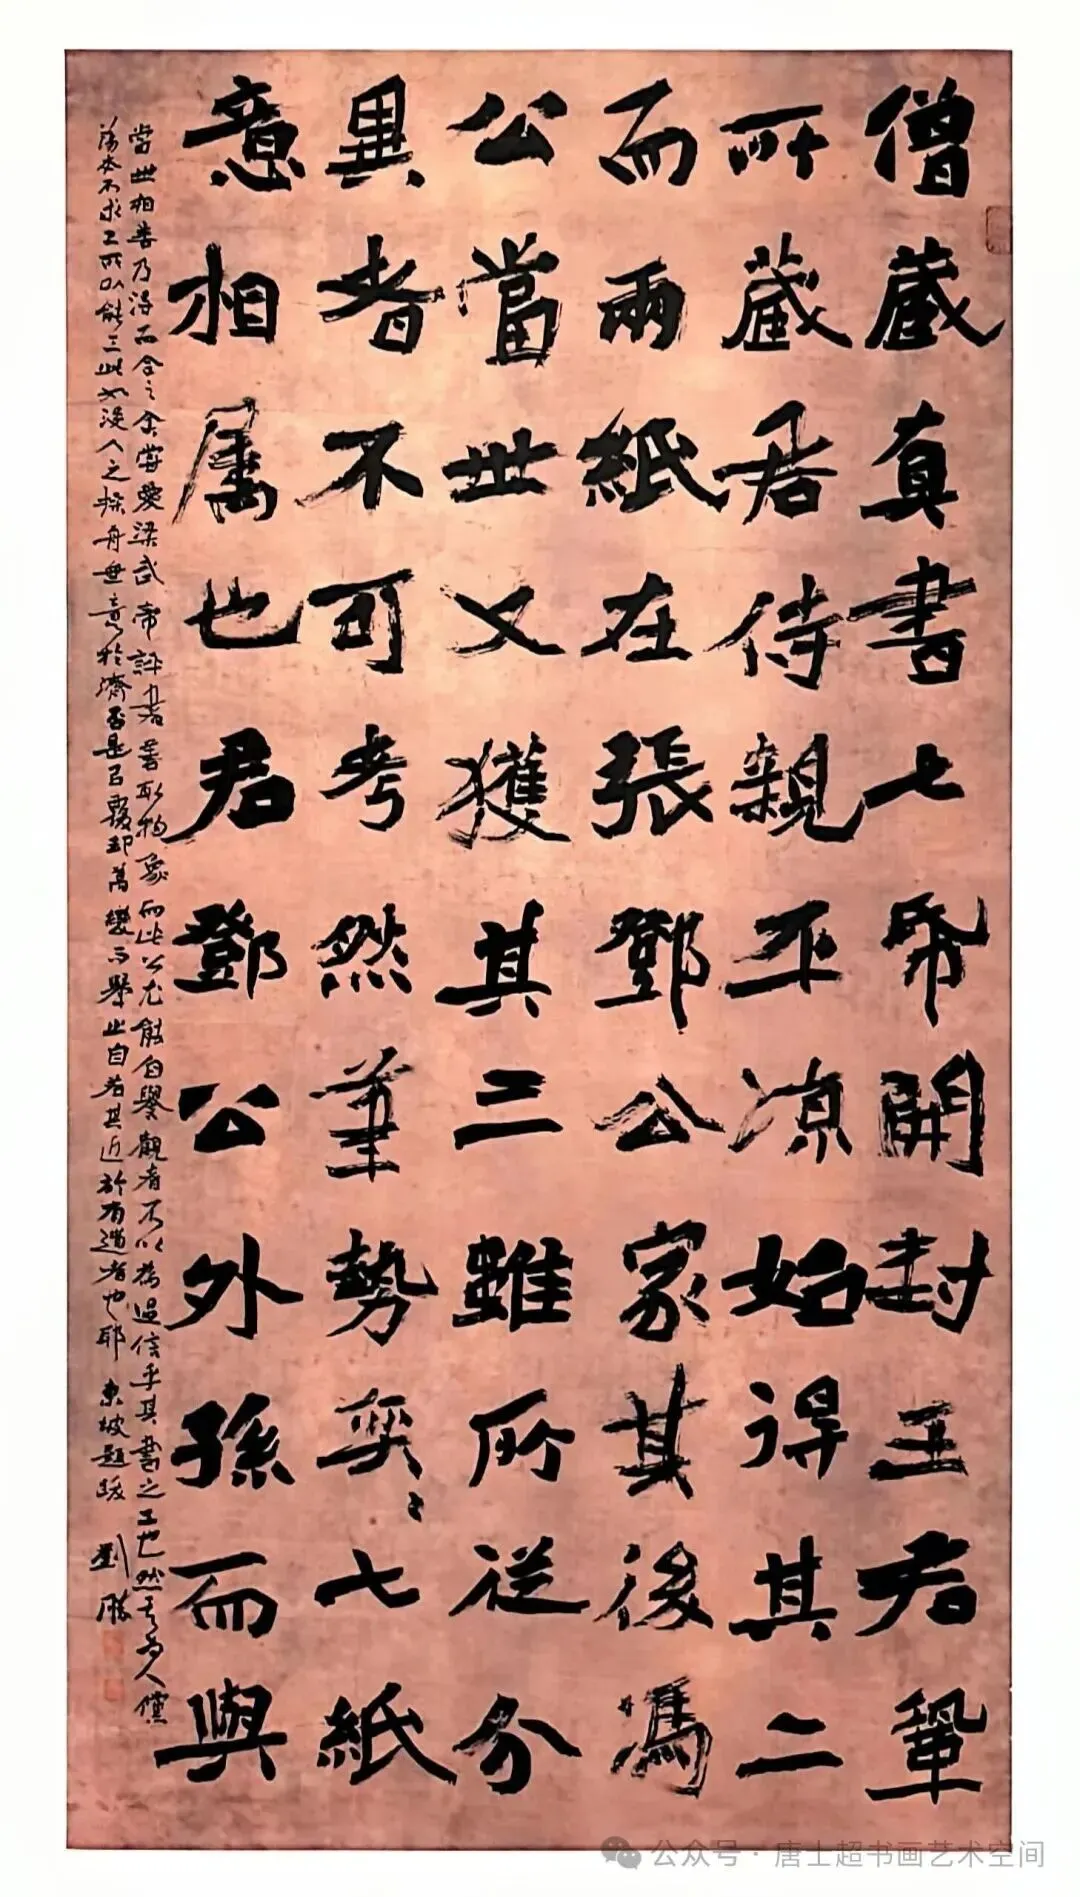 僧藏真書七帋開封王君鞏
所藏君侍親平涼始得其二
而兩紙在張鄧公家其後馮
公當世又獲其三雖所從分
異者不可考然筆勢奕〻七紙
意相属也君鄧公外孫而與
當世相善乃得而合之余嘗愛梁武帝評書善取物象而此公尤能自譽觀者不以為過信乎其書之工也然其為人儻
蕩本不求工所以能工此如没人之操舟無意於濟否是以覆却萬變而舉止自若其近於有道者也耶 東坡題跋 劉勝
公众号·唐士超书画艺术空间